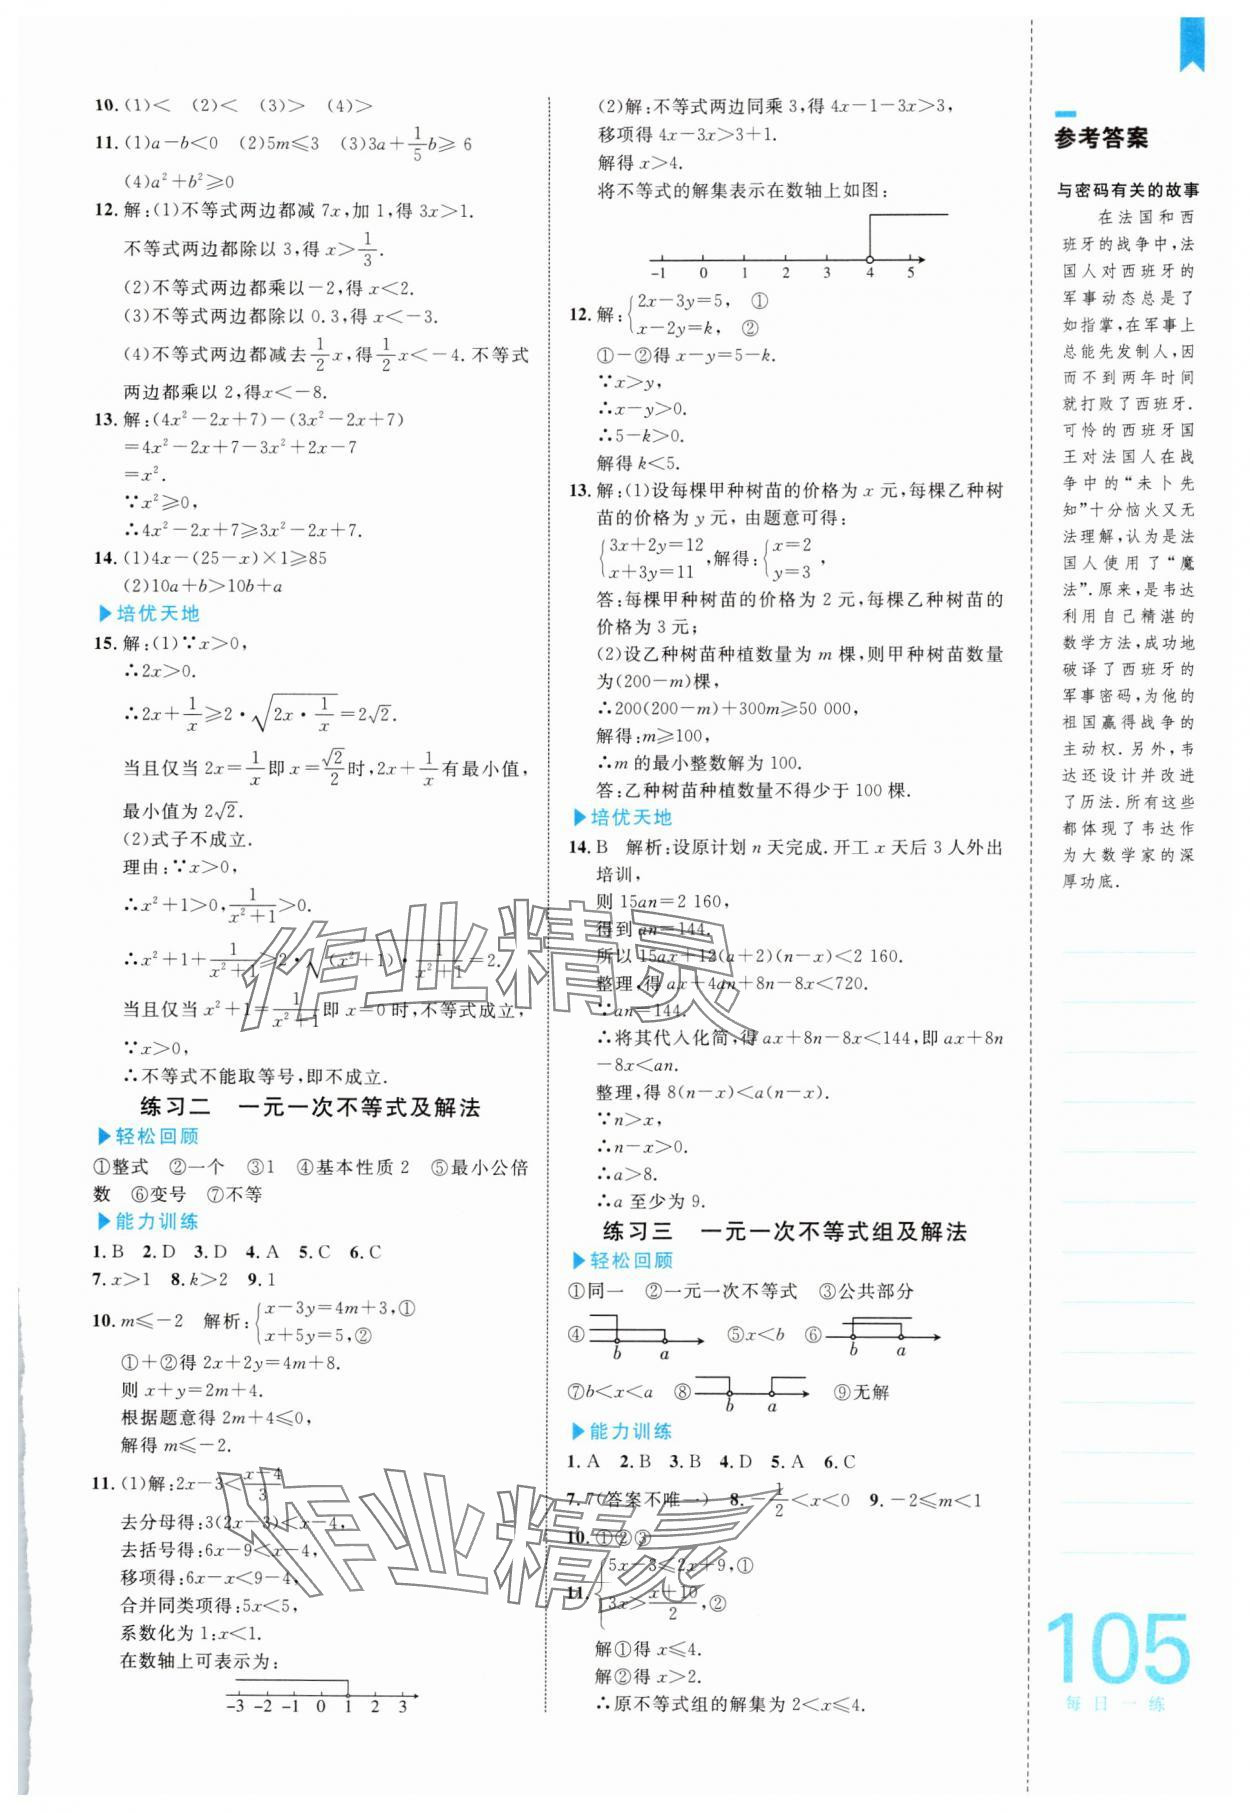 10.(1)< (2)< (3)> (4)>
11.(1)a-b<0 (2)5m≤3 (3)3a+1/5b≥6
(4)a²+b²≥0
12.解:(1)不等式两边都减 7x,加 1,得 3x>1.
不等式两边都除以 3,得 x>1/3.
(2)不等式两边都乘以-2,得 x<2.
(3)不等式两边都除以 0.3,得 x<-3.
(4)不等式两边都减去1/2x,得1/2x<-4.不等式
两边都乘以 2,得x<-8.
13.解:(4x²-2x+7)-(3x²-2x+7)
=4x²-2x+7-3x²+2x-7
=x².
∵x²≥0,
∴4x²-2x+7≥3x²-2x+7.
14.(1)4x-(25-x)×1≥85
(2)10a+b>10b+a
▶培优天地
15.解:(1)∵x>0,
∴2x>0.
∴2x+1/x≥2·√(2x·1/x)=2√2.
当且仅当 2x=1/x即 x=√2/2时,2x+1/x有最小值,
最小值为 2√2.
(2)式子不成立.
理由:∵x>0,
∴x²+1>0,1/(x²+1)>0.
∴x²+1+1/(x²+1)≥2·√((x²+1)·1/(x²+1))=2.
当且仅当 x²+1=1/(x²+1)即 x=0 时,不等式成立,
∵x>0,
∴不等式不能取等号,即不成立.
练习二 一元一次不等式及解法
▶轻松回顾
①整式 ②一个 ③1 ④基本性质 2 ⑤最小公倍
数 ⑥变号 ⑦不等
▶能力训练
1.B 2.D 3.D 4.A 5.C 6.C
7.x>1 8.k>2 9.1
10.m≤-2 解析:{x-3y=4m+3,①
x+5y=5,②
①+②得 2x+2y=4m+8.
则 x+y=2m+4.
根据题意得 2m+4≤0,
解得 m≤-2.
11.(1)解:2x-3<(x-4)/3
去分母得:3(2x-3)<x-4,
去括号得:6x-9<x-4,
移项得:6x-x<9-4,
合并同类项得:5x<5,
系数化为 1:x<1.
在数轴上可表示为:
-3 -2 -1 0 1 2 3
(2)解:不等式两边同乘 3,得 4x-1-3x>3,
移项得 4x-3x>3+1.
解得 x>4.
将不等式的解集表示在数轴上如图:
-1 0 1 2 3 4 5
12.解:{2x-3y=5, ①
x-2y=k, ②
①-②得 x-y=5-k.
∵x>y,
∴x-y>0.
∴5-k>0.
解得 k<5.
13.解:(1)设每棵甲种树苗的价格为 x 元,每棵乙种树
苗的价格为 y 元,由题意可得:
{3x+2y=12 x+3y=11,解得:{x=2 y=3,
答:每棵甲种树苗的价格为 2 元,每棵乙种树苗的
价格为 3 元;
(2)设乙种树苗种植数量为 m 棵,则甲种树苗数量
为(200-m)棵,
∴200(200-m)+300m≥50 000,
解得:m≥100,
∴m 的最小整数解为 100.
答:乙种树苗种植数量不得少于 100 棵.
▶培优天地
14.B 解析:设原计划 n 天完成.开工 x 天后 3 人外出
培训,
则 15an=2 160,
得到 an=144.
所以 15ax+12(a+2)(n-x)<2 160.
整理,得 ax+4an+8n-8x<720.
∵an=144.
∴将其代入化简,得 ax+8n-8x<144,即 ax+8n
-8x<an.
整理,得 8(n-x)<a(n-x).
∵n>x,
∴n-x>0.
∴a>8.
∴a 至少为 9.
练习三 一元一次不等式组及解法
▶轻松回顾
①同一 ②一元一次不等式 ③公共部分
④ b a ⑤x<b ⑥ b a
⑦b<x<a ⑧ b a ⑨无解
▶能力训练
1.A 2.B 3.B 4.D 5.A 6.C
7.7(答案不唯一) 8.-1/2<x<0 9.-2≤m<1
10.①②③
11.{5x-3≤2x+9,①
3x>(x+10)/2,②
解①得 x≤4.
解②得 x>2.
∴原不等式组的解集为 2<x≤4.
参考答案
与密码有关的故事
在法国和西
班牙的战争中,法
国人对西班牙的
军事动态总是了
如指掌,在军事上
总能先发制人,因
而不到两年时间
就打败了西班牙.
可怜的西班牙国
王对法国人在战
争中的“未卜先
知”十分恼火又无
法理解,认为是法
国人使用了“魔
法”.原来,是韦达
利用自己精湛的
数学方法,成功地
破译了西班牙的
军事密码,为他的
祖国赢得战争的
主动权.另外,韦
达还设计并改进
了历法.所有这些
都体现了韦达作
为大数学家的深
厚功底.
105
每日一练
作业精灵
作业精灵